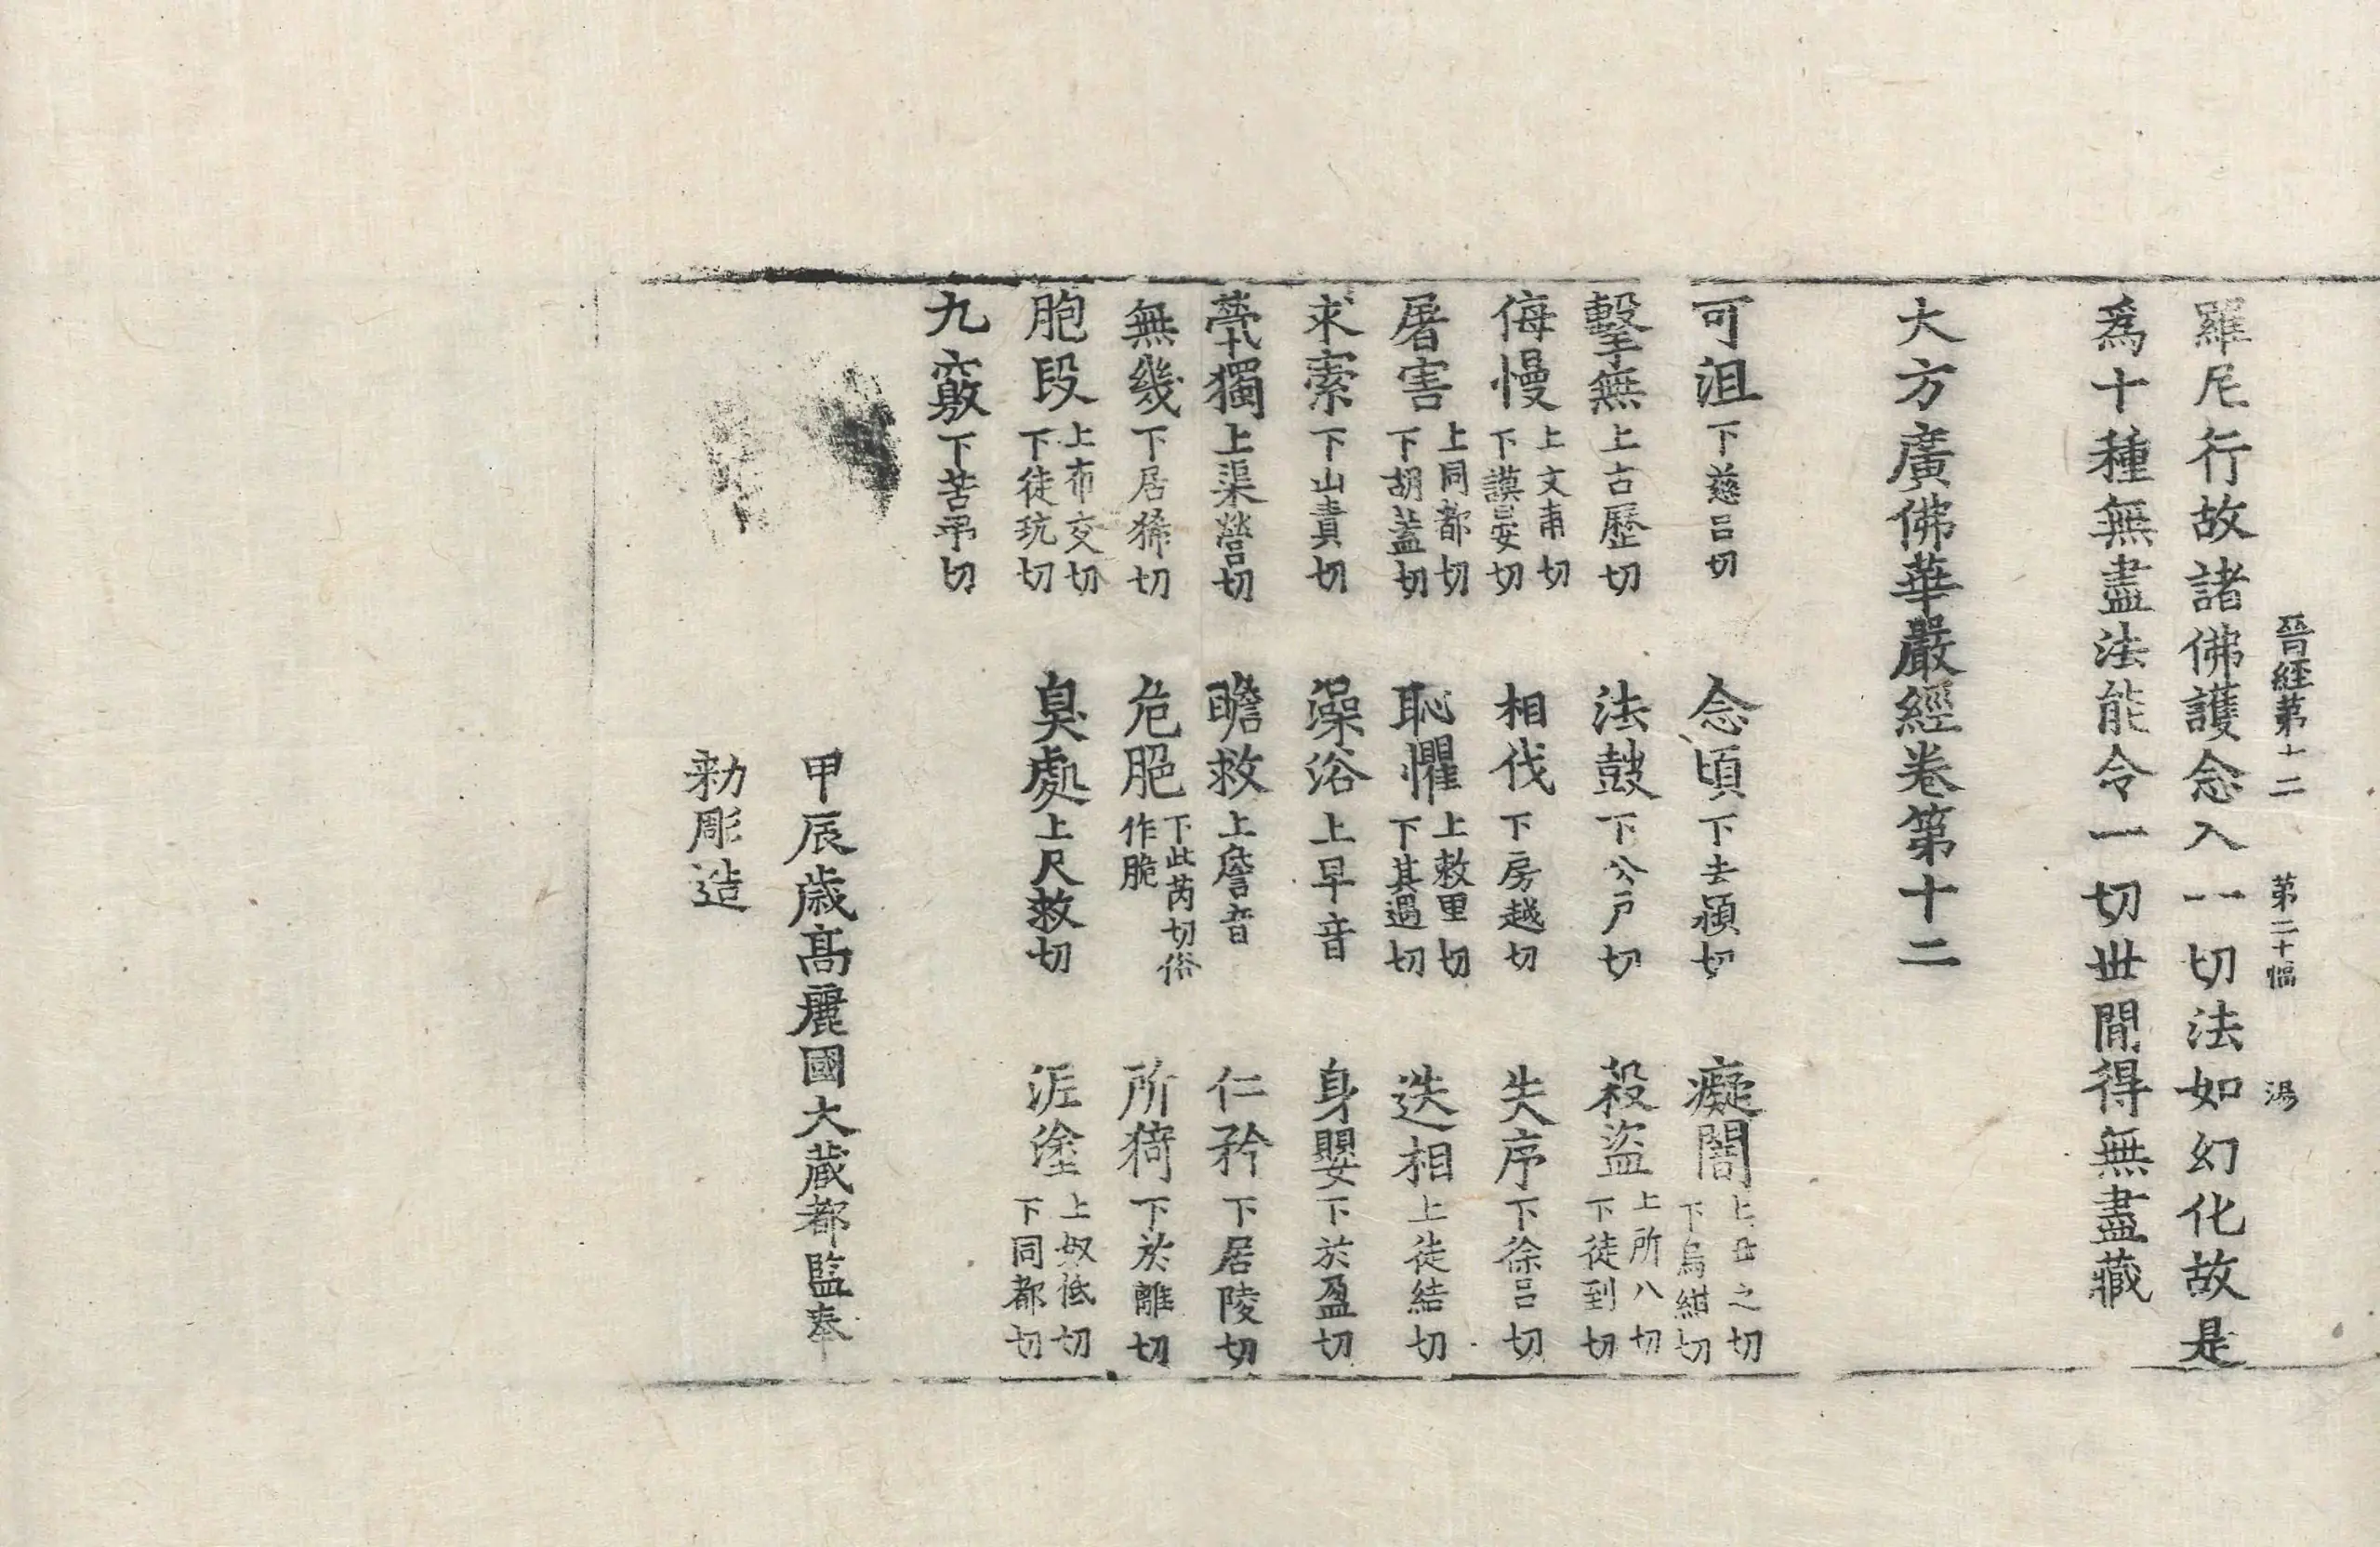 晉經第十二 第二十幅 湯
羅尼行故諸佛護念入一切法如幻化故是
爲十種無盡法能令一切世間得無盡藏
大方廣佛華嚴經卷第十二
可沮下慈呂切 念頃下去潁切 癡闇上丑之切下烏紺切
擊無上古歷切 法鼓下公戶切 殺盜上所八切下徒到切
侮慢上文甫切下謨晏切 相伐下房越切 失序下徐呂切
屠害上同都切下胡蓋切 恥懼上敕里切下其遇切 迭相上徒結切
求索下山責切 澡浴上早音 身嬰下於盈切
煢獨上渠營切 瞻救上詹音 仁矜下居陵切
無幾下居狶切 危脃下此芮切俗作脆 所猗下於離切
胞段上布交切下徒玩切 臭處上尺救切 泥塗上奴低切下同都切
九竅下苦弔切
甲辰歲高麗國大藏都監奉
勅彫造